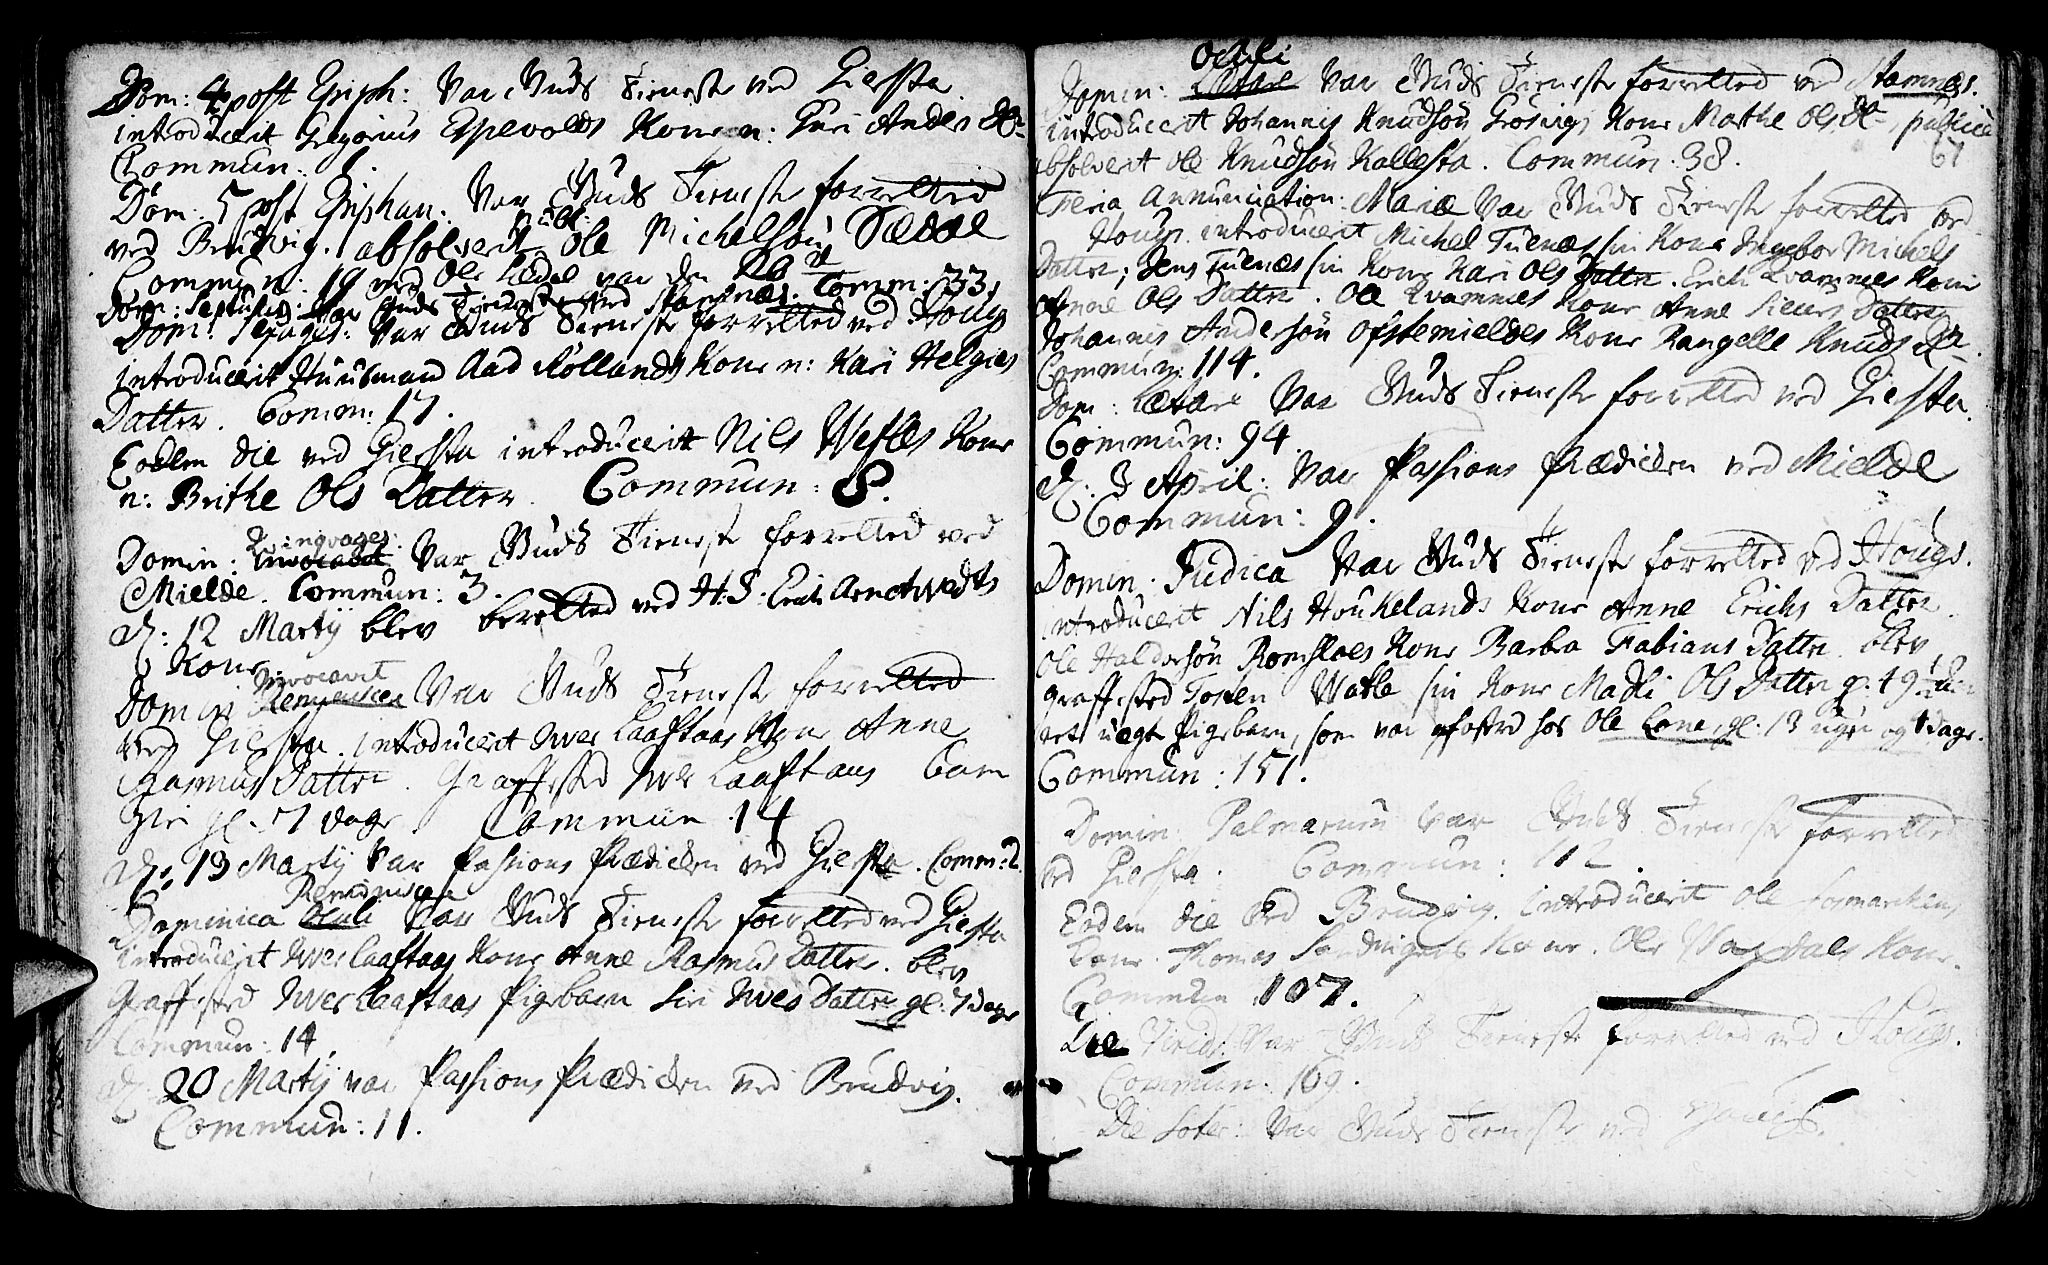 Dom: 4 post Epiph: Var Guds Tieneste ved Giersta
introducerit Gregorius Espevolds Kone n: Guri Anders Dr
Commun: 8.
Dom: 5 post Epiphan: Var Guds Tieneste forretted
ved Brudvig. absolverit publ: Ole Michelsøn Dædal
Commun: 19
Dom: Septuag: Var Guds Tieneste ved Stamnæs. Comm: 33.
Dom: Sexages: Var Guds Tieneste forretted ved Hougs
introducerit Huusmand Aad Rollands Kone n: Kari Helgies
Datter. Comm: 17.
Eodem die ved Giersta introducerit Nils Wefles Kone
n: Brithe Ols Datter. Commun: 8.
Domin: Qvinqvages: Var Guds Tieneste forretted ved
Mielde. Commun: 3.
d: 12 Martij blev beretted ved H: S: Erich Arnetvedts
Kone
Domin Invocavit Var Guds Tieneste forretted
ved Giersta. introducerit Iver Laaftaas Kone Anne
Rasmus Datter. Graffæsted Iver Laaftaas Barn
Siri gl. 7 dage. Commun 14
d: 13 Martij var Passions Prædicken ved Giersta. Comm: 2.
Dominica Reminiscere Var Guds Tieneste forretted ved Giersta
introducerit Iver Laaftaas Kone Anne Rasmus Datter. blev
Graffæsted Iver Laaftaas Pigebarn Siri Ivers Datter gl: 7 dage
Commun: 14.
d. 20 Martij var Passions Prædicken ved Brudvig.
Commun: 11.
Oculi
Domin: Lætare Var Guds Tieneste forretted ved Stamnæs.
introducerit Johannis Knudsøn Grosvigs Kone Marthe Ols Dr publice
67
absolverit Ole Knudsøn Kallesta. Commun: 38.
Feria Annunciation: Mariæ Var Guds Tieneste forretted ved
Hougs. introducerit Michel Tuenæs sin Kone Ingebor Michels
Datter; Jens Tuenæs sin Kone Kari Ols Datter. Erich Kvamnes Kone
Ols Datter. Ole Kvamnes Kone Anne Siurs Datter
Johannis Andersøn Ofstemieldes Kone Rangelle Knuds Dr.
Commun: 114.
Dom: Lætare Var Guds Tieneste forretted ved Giersta.
Commun: 94.
d: 3 April: Var Passions Prædicken ved Mielde
Commun: 9.
Domin. Judica Var Guds Tieneste forretted ved Hougs.
introducerit Nils Houkelands Kone Anne Erichs Datter.
Ole Haldorsøn Romsloes Kone Barbra Fabians Datter. blev
graffæsted Tosten Watle sin Kone Madli Ols Datter g. 49 1/2
et uegte Pigebarn, som var opfostred hos Ole Lone, gl: 13 uger og 4 dage.
Commun: 151.
Domin: Palmarum Var Guds Tieneste forrettet
ved Giersta. Commun: 112.
Eodem die ved Brudvig. introducerit Ole
Kone. Thomas Sandvigens Kone. Ole Vaxdals Kone.
Commun: 107.
Die Virid: Var Guds Tieneste forrettet ved Hougs.
Commun: 169.
Die Var Guds Tieneste ved